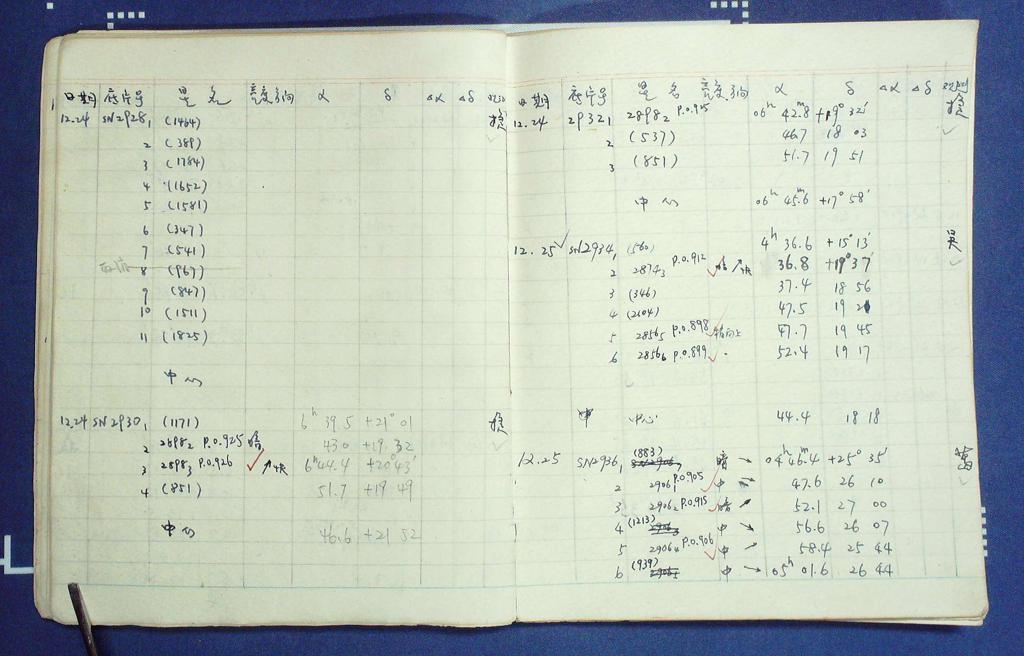 日期 底片号 星名 亮度 方向 α δ Δα Δδ
12.24 SN2928 1 (1464)
2 (389)
3 (1784)
4 (1652)
5 (1581)
6 (347)
7 (541)
8 (967)
9 (847)
10 (1511)
11 (1825)
中心
12.24 SN2930 1 (1171) 6h 39.5 +21° 01
2 2898₂ P.O.925 暗 43.0 +19. 32
3 2898₃ P.O.926 ✓ ↗快 6h 44.4 +20° 43'
4 (851) 51.7 +19 49
中心 46.6 +21 52
日期 底片号 星名 亮度 方向 α δ Δα Δδ
12.24 2932 1 2898₂ P.O.925 06h 42.8m +19° 32'
2 (537) 46.7 18 03
3 (851) 51.7 19 51
中心 06h 45.6m +17° 58'
12.25 ✓ SN2934 1 (560) 4h 36.6 +15° 13'
2 2874₃ P.O.912 ✓ 暗 ↗快 36.8 +19° 37'
3 (346) 37.4 18 56
4 (2604) 47.5 19
5 2856₅ P.O.898 ✓ 47.7 19 45
6 2856₆ P.O.899 ✓ 52.4 19 17
中心 44.4 18 18
12.25 SN2936 1 (883) 暗 → 04h 46.4m +25° 35'
2 2906₁ P.O.905 ✓ 中 → 47.6 26 10
3 2906₂ P.O.915 ✓ 暗 52.1 27 00
4 (1213) 中 → 56.6 26 07
5 2906₄ P.O.906 ✓ 中 58.4 25 44
6 (939) 中 → 05h 01.6 26 44